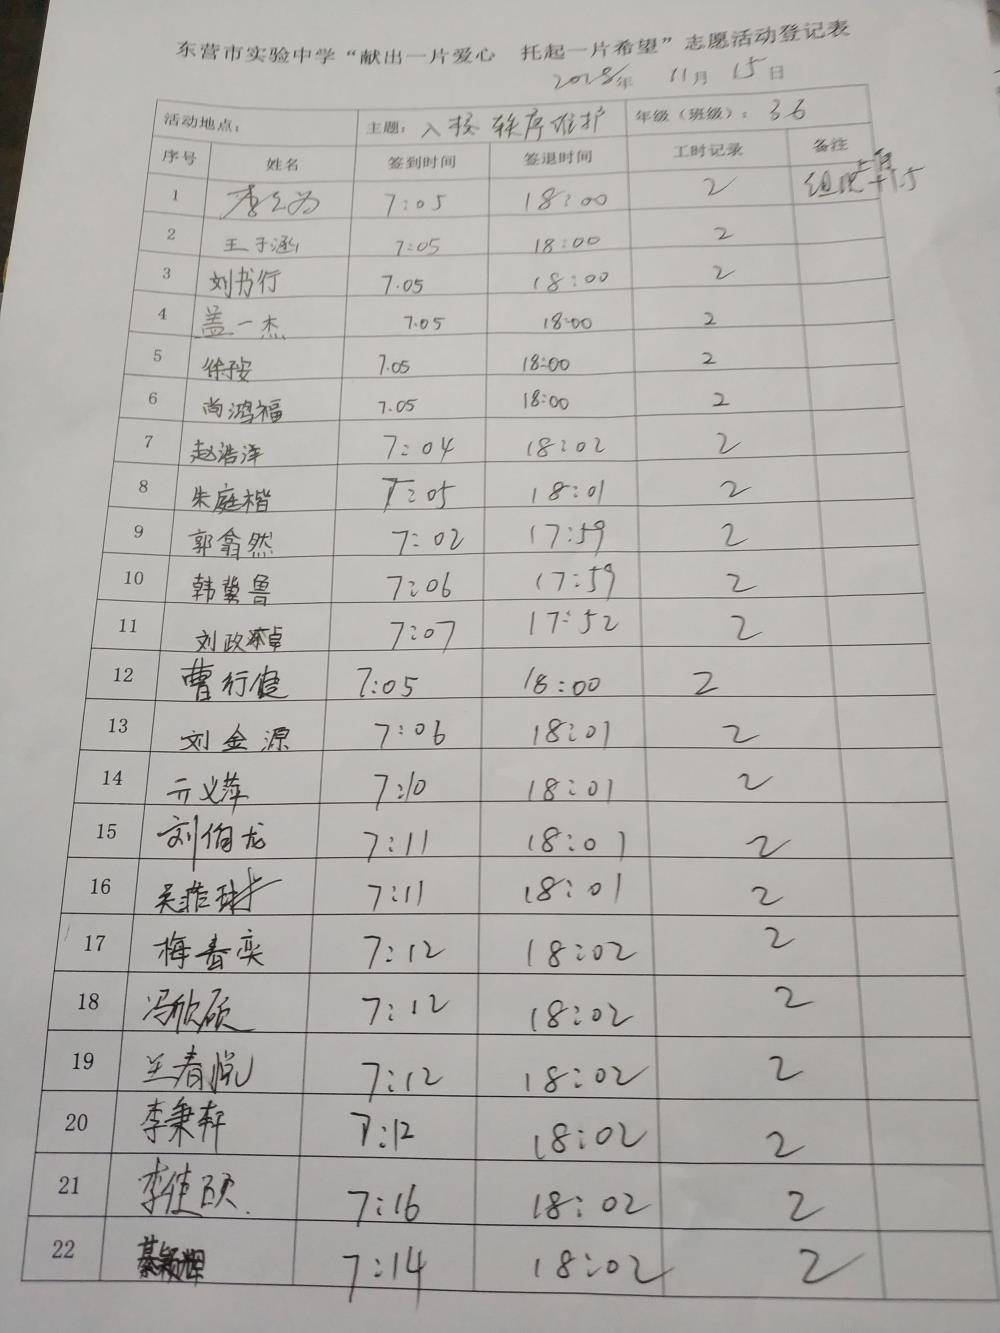 东营市实验中学“献出一片爱心 托起一片希望”志愿活动登记表
2018年 11月 15日
活动地点： 主题：入校秩序维护 年级（班级）：36
序号 姓名 签到时间 签退时间 工时记录 备注
1 7:05 18:00 2
2 王子涵 7:05 18:00 2
3 刘书行 7.05 18:00 2
4 盖一杰 7.05 18:00 2
5 7.05 18:00 2
6 尚鸿福 7.05 18:00 2
7 赵浩泽 7:04 18:02 2
8 朱庭楷 7:05 18:01 2
9 郭翕然 7:02 17:59 2
10 韩冀鲁 7:06 17:59 2
11 刘政 7:07 17:52 2
12 曹行健 7:05 18:00 2
13 刘金源 7:06 18:01 2
14 亓义萍 7:10 18:01 2
15 刘伯龙 7:11 18:01 2
16 7:11 18:01 2
17 梅春奕 7:12 18:02 2
18 冯欣硕 7:12 18:02 2
19 兰春悦 7:12 18:02 2
20 李秉轩 7:12 18:02 2
21 李佳硕 7:16 18:02 2
22 7:14 18:02 2